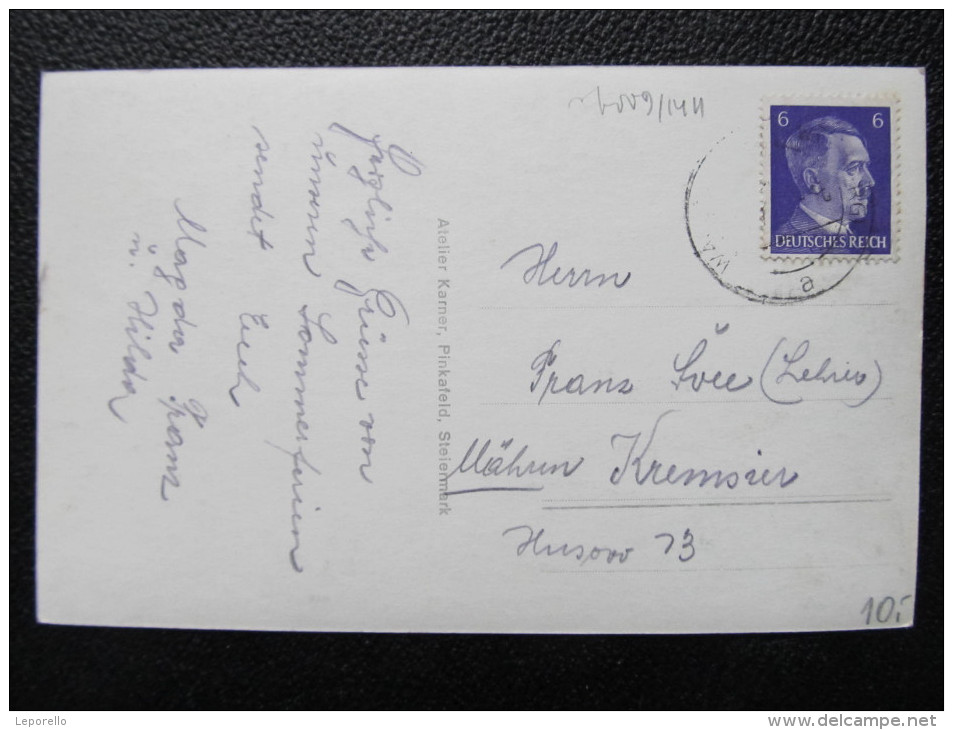 6 6
DEUTSCHES REICH
WA
a
Herzliche Grüsse von
unseren Sommerferien
sendet Euch
Magda Franz
u. Hilda
Atelier Karner, Pinkafeld, Steiermark
Herrn
Franz (Lehrer)
Mähren Kremsier
Husova 73
10,-
Leporello
www.delcampe.net